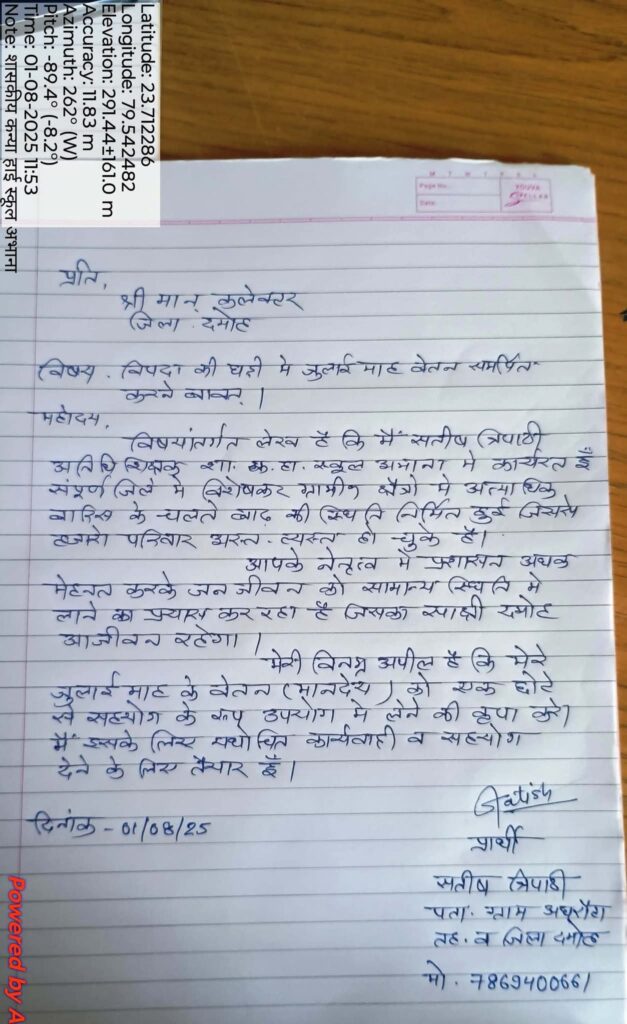 Latitude: 23.712286
Longitude: 79.542482
Elevation: 291.44±161.0 m
Accuracy: 11.83 m
Azimuth: 262° (W)
Pitch: -89.4° (-8.2°)
Time: 01-08-2025 11:53
Note: शासकीय कन्या हाई स्कूल अभाना
Page No.
Date:
YOUVA
STELLAR
प्रति,
श्री मान् कलेक्टर
जिला दमोह
विषय. विपदा की घड़ी मे जुलाई माह वेतन समर्पित
करने बावत् |
महोदय,
विषयांतर्गत लेख है कि मैं सतीष त्रिपाठी
अतिथि शिक्षक शा. क. हा. स्कूल अभाना मे कार्यरत हूँ
संपूर्ण जिले मे विशेषकर ग्रामीण क्षेत्रो मे अत्याधिक
बारिस के चलते बाढ़ की स्थिति निर्मित हुई जिससे
हजारो परिवार अस्त-व्यस्त हो चुके है।
आपके नेतृत्व मे प्रशासन अथक
मेहनत करके जन जीवन को सामान्य स्थिति मे
लाने का प्रयास कर रहा है जिसका साक्षी दमोह
आजीवन रहेगा |
मेरी विनम्र अपील है कि मेरे
जुलाई माह के वेतन (मानदेय) को एक छोटे
से सहयोग के रूप उपयोग मे लेने की कृपा करे।
मैं इसके लिए यथोचित कार्यवाही व सहयोग
देने के लिए तैयार हूँ।
Satish
दिनांक - 01/08/25
प्रार्थी
सतीष त्रिपाठी
पता. ग्राम
तह. व जिला दमोह
मो. 7869400661
Powered by A